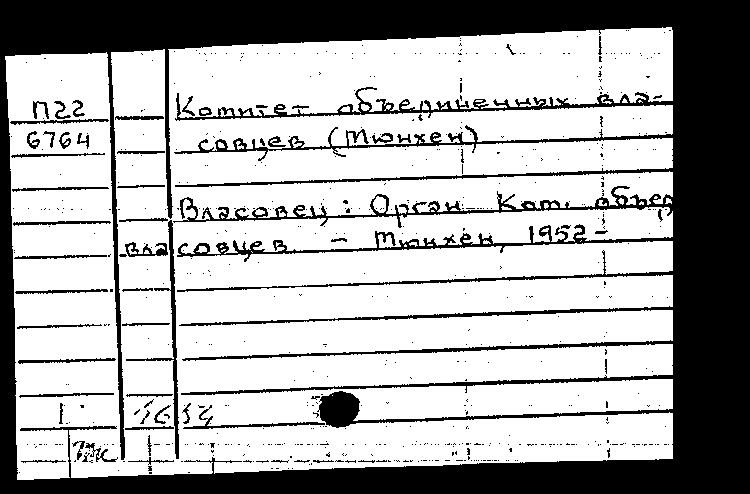 П22 Комитет объединенных вла-
6764 совцев (Мюнхен)
Власовец: Орган Ком. объед
власовцев – Мюнхен, 1952–
1